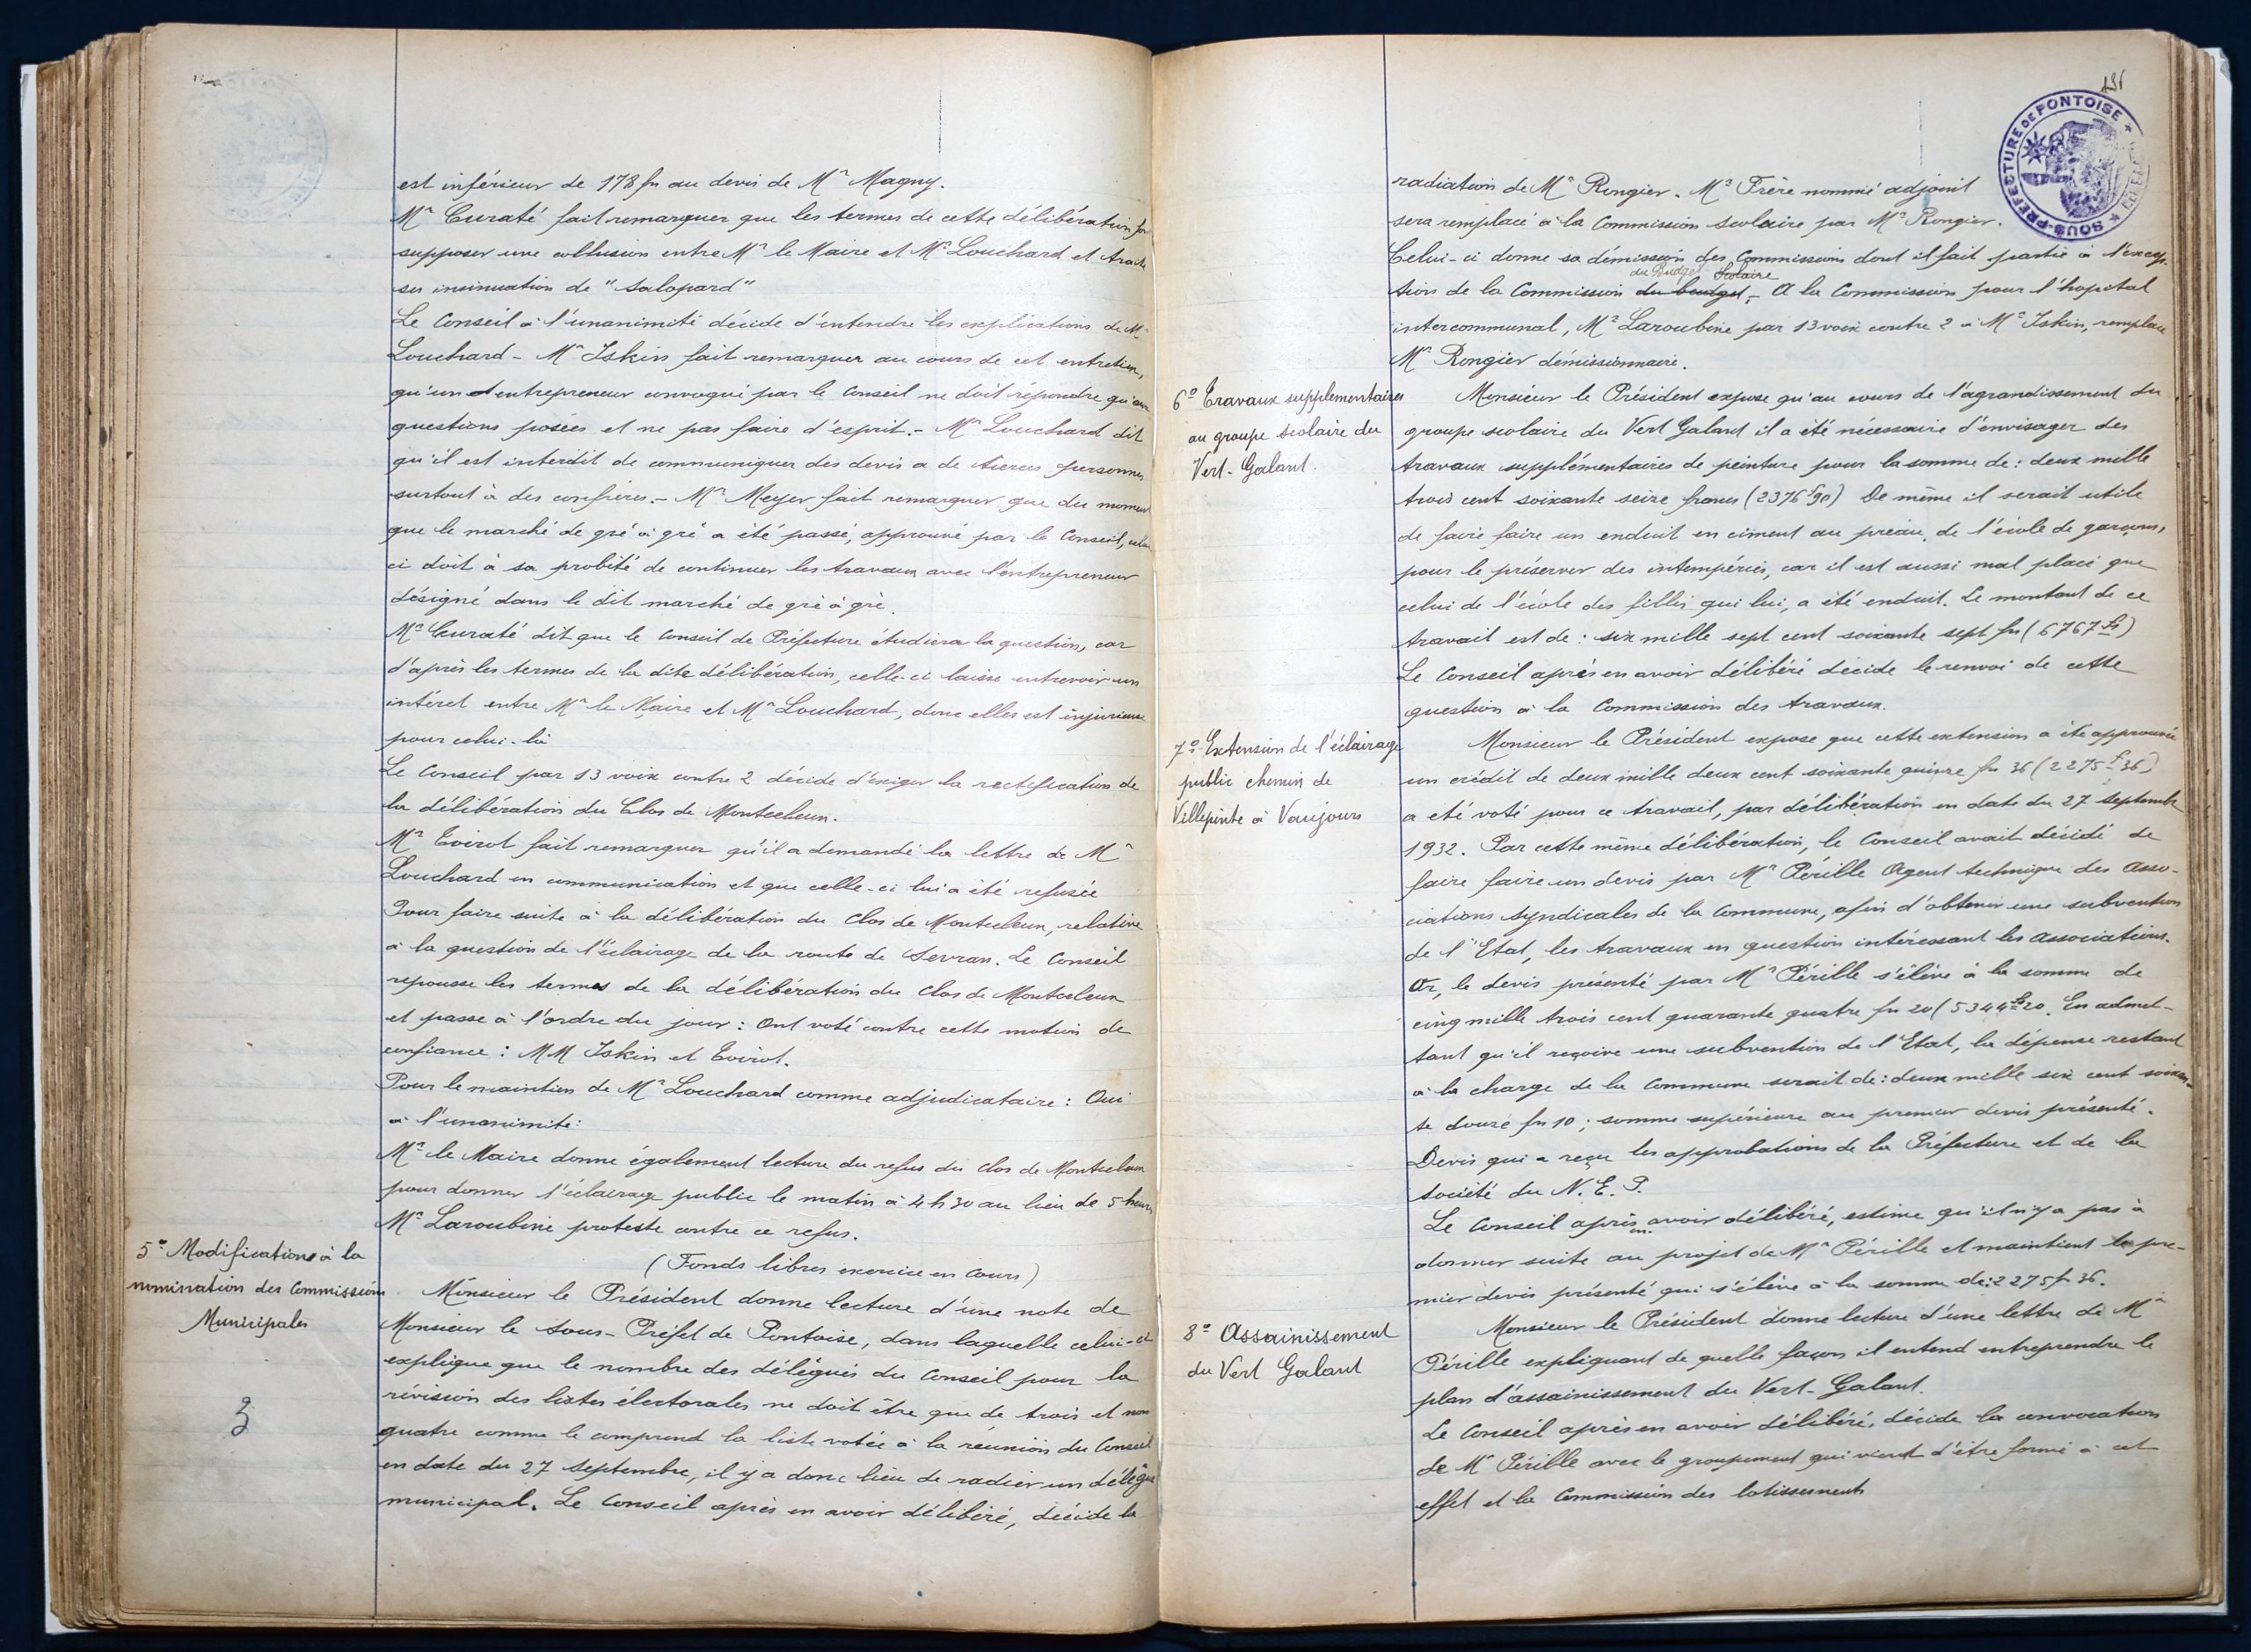 est inférieur de 178 frs au devis de Mr Magny.
Mr Curaté fait remarquer que les termes de cette délibération
supposer une collusion entre Mr le Maire et Mr Louchard et traite
ses insinuation de "salopard"
Le Conseil à l'unanimité décide d'entendre les explications de Mr
Louchard - Mr Iskin fait remarquer au cours de cet entretien,
qu'un entrepreneur convoqué par le Conseil ne doit répondre qu'aux
questions posées et ne pas faire d'esprit. - Mr Louchard dit
qu'il est interdit de communiquer des devis a de tierces personnes
surtout à des confrères. - Mr Meyer fait remarquer que du moment
que le marché de gré à gré a été passé, approuvé par le Conseil, celui
ci doit à sa probité de continuer les travaux avec l'entrepreneur
désigné dans le dit marché de gré à gré.
Mr Curaté dit que le Conseil de Préfecture étudiera la question, car
d'après les termes de la dite délibération, celle-ci laisse entrevoir un
intéret entre Mr le Maire et Mr Louchard, donc elles est injurieuse
pour celui-là
Le Conseil par 13 voix contre 2 décide d'exiger la rectification de
la délibération du Clos de Montceleux.
Mr Evirot fait remarquer qu'il a demandé la lettre de Mr
Louchard en communication et que celle-ci lui a été refusée
Pour faire suite à la délibération du Clos de Montceleux, relative
à la question de l'éclairage de la route de Sevran. Le Conseil
repousse les termes de la délibération du Clos de Montceleux
et passe à l'ordre du jour : Ont voté contre cette motion de
confiance : MM Iskin et Evirot.
Pour le maintien de Mr Louchard comme adjudicataire : Oui
à l'unanimité :
Mr le Maire donne également lecture du refus du Clos de Montceleux
pour donner l'éclairage public le matin à 4 h 30 au lieu de 5 heures
Mr Laroubine proteste contre ce refus.
(Fonds libres exercice en cours)
5° Modifications à la
nomination des Commissions
Municipales
3
Monsieur le Président donne lecture d'une note de
Monsieur le Sous-Préfet de Pontoise, dans laquelle celui-ci
explique que le nombre des délégués du Conseil pour la
révision des listes électorales ne doit être que de trois et non
quatre comme le comprend la liste votée à la réunion du Conseil
en date du 27 Septembre, il y a donc lieu de radier un délégué
municipal. Le Conseil après en avoir délibéré, décide la
SOUS-PREFECTURE DE PONTOISE
radiation de Mr Rongier. Mr Frère nommé adjoint
sera remplacé à la Commission scolaire par Mr Rongier.
Celui-ci donne sa démission des Commissions dont il fait partie à l'excep-
du Budget Scolaire
tion de la Commission du budget. - A la Commission pour l'hopital
intercommunal, Mr Laroubine par 13 voix contre 2 à Mr Iskin, remplace
Mr Rongier démissionnaire.
6° Travaux supplementaires
au groupe scolaire du
Vert-Galant.
Monsieur le Président expose qu'au cours de l'agrandissement du
groupe scolaire du Vert Galant il a été nécessaire d'envisager des
travaux supplémentaires de peinture pour la somme de : deux mille
trois cent soixante seize francs (2376 f 90) De même il serait utile
de faire faire un enduit en ciment au préau de l'école de garçons,
pour le préserver des intempéries, car il est aussi mal placé que
celui de l'école des filles qui lui, a été enduit. Le montant de ce
travail est de : six mille sept cent soixante sept frs (6767 frs)
Le Conseil après en avoir délibéré décide le renvoi de cette
question à la Commission des travaux.
7° Extension de l'éclairage
public chemin de
Villepinte à Vaujours
Monsieur le Président expose que cette extension a été approuvée
un crédit de deux mille deux cent soixante quinze frs 36 (2275 f 36)
a été voté pour ce travail, par délibération en date du 27 Septembre
1932. Par cette même délibération, le Conseil avait décidé de
faire faire un devis par Mr Pérille Agent technique des Asso-
ciations Syndicales de la Commune, afin d'obtenir une subvention
de l'Etat, les travaux en question intéressant les Associations.
Or, le devis présenté par Mr Pérille s'élève à la somme de
cinq mille trois cent quarante quatre frs 20 (5344 frs 20. En admet-
tant qu'il reçoive une subvention de l'Etat, la dépense restant
à la charge de la Commune serait de : deux mille six cent soixan-
te douze frs 10 ; somme supérieure au premier devis présenté.
Devis qui a reçu les approbations de la Préfecture et de la
Société du N. E. P.
Le Conseil après en avoir délibéré, estime qu'il n'y a pas à
donner suite au projet de Mr Pérille et maintient le pre-
mier devis présenté qui s'élève à la somme de : 2275 f 36.
8° Assainissement
du Vert Galant
Monsieur le Président donne lecture d'une lettre de Mr
Pérille expliquant de quelle façon il entend entreprendre le
plan d'assainissement du Vert-Galant.
Le Conseil après en avoir délibéré, décide la convocation
de Mr Pérille avec le groupement qui vient d'être formé à cet
effet et la Commission des lotissements